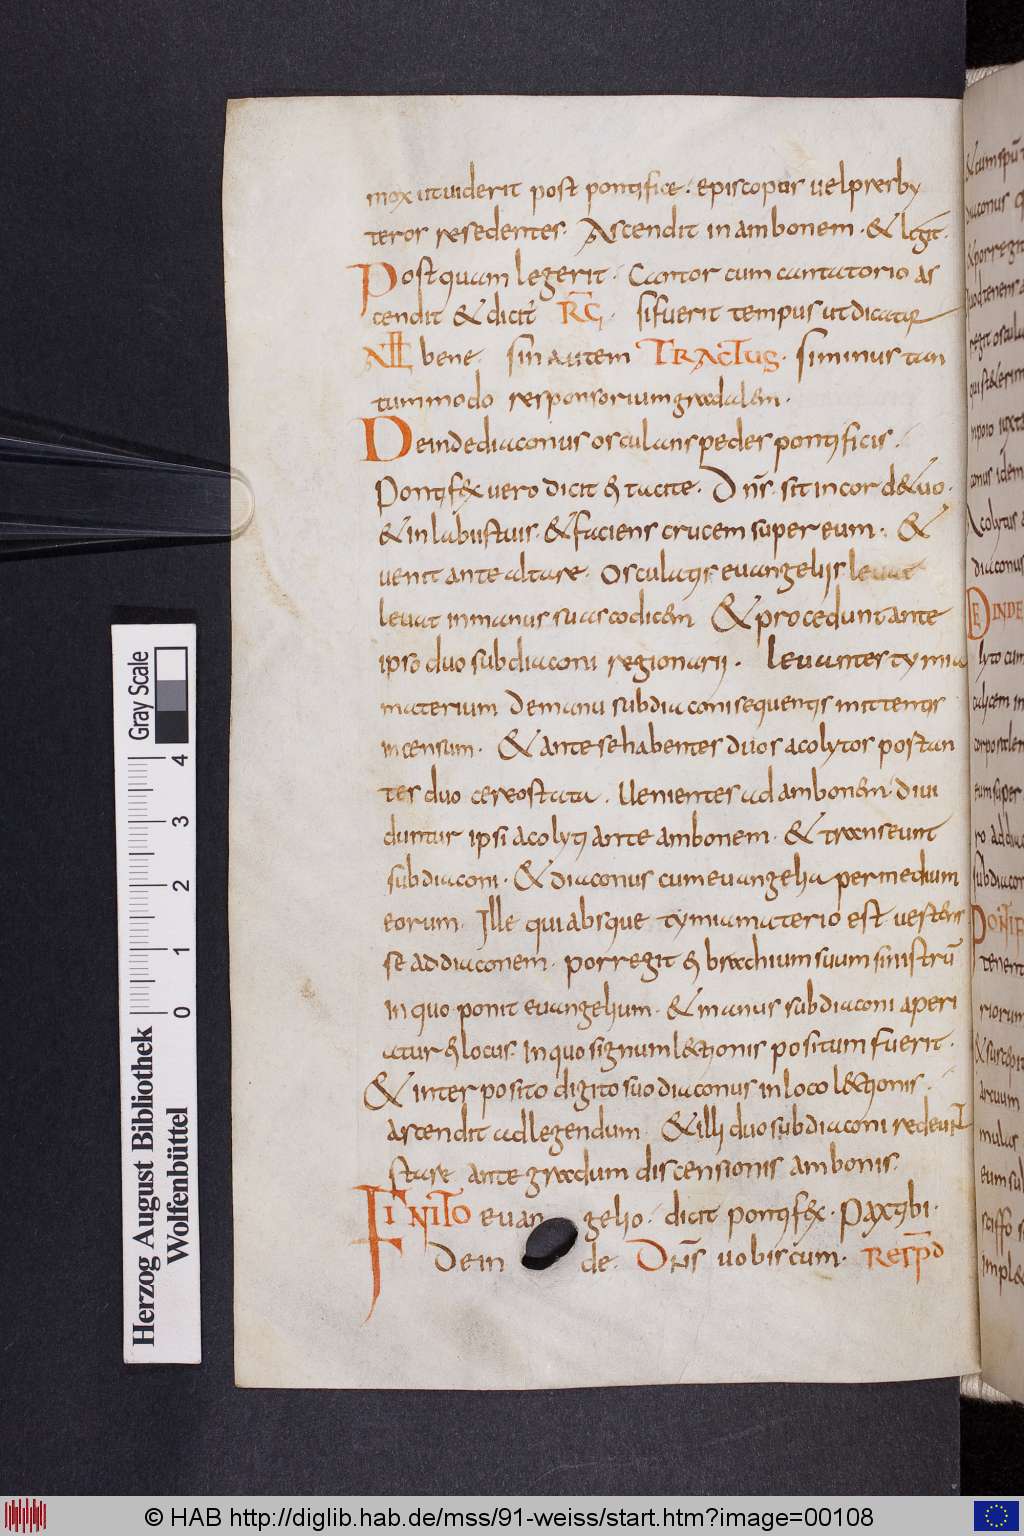 mox ut uiderit post pontifice. episcopos uel presby
teros resedentes. Ascendit in ambonem. & legit.
Postquam legerit. Cantor cum cantatorio as
cendit & dicit RŌ. si fuerit tempus ut dicatur
ALL bene. sin autem TRACTUS. siminus tan
tummodo responsorium gradalem.
Deinde diaconus osculans pedes pontificis.
Pontifex uero dicit ei tacite. Dn̄s. sit in corde tuo.
& in labiis tuis. & faciens crucem super eum. &
uenit ante altare. Osculatis euangeliis leuat
leuat in manus suas codicem & procedunt ante
ipso duo subdiaconi regionarii. leuantes tymia
materium de manu subdiaconi sequentis mittentis
incensum. & ante se habentes duos acolytos postan
tes duo cereostata. Uenientes ad ambonem. diui
duntur ipsi acolyti ante ambonem. & transeunt
subdiaconi. & diaconus cum euangelia per medium
eorum. Ille qui absque tymiamaterio est uertens
se ad diaconem. porregit ei brachium suum sinistrū
in quo ponit euangelium. & manus subdiaconi aperi
atur ei locus. In quo signum lectionis positum fuerit.
& inter posito digito suo diaconus in loco lectionis.
ascendit ad legendum & illi duo subdiaconi redeunt
stare ante gradum discensionis ambonis.
FINITO euangelio. dicit pontifex. Pax tibi.
Deinde. Dn̄s uobiscum. Resp̄d
Herzog August Bibliothek
Wolfenbüttel
0 1 2 3 4
Gray Scale
& cum spū
diaconus
& porregit
regit oscula
anus idem
Acolytus
diaconus
DEINDE
lyto cum
calycem in
tum super
ro ad dia
subdiacon
PONTIF
tenent
riorum
& suscepit
eum sub
sciffo
© HAB http://diglib.hab.de/mss/91-weiss/start.htm?image=00108